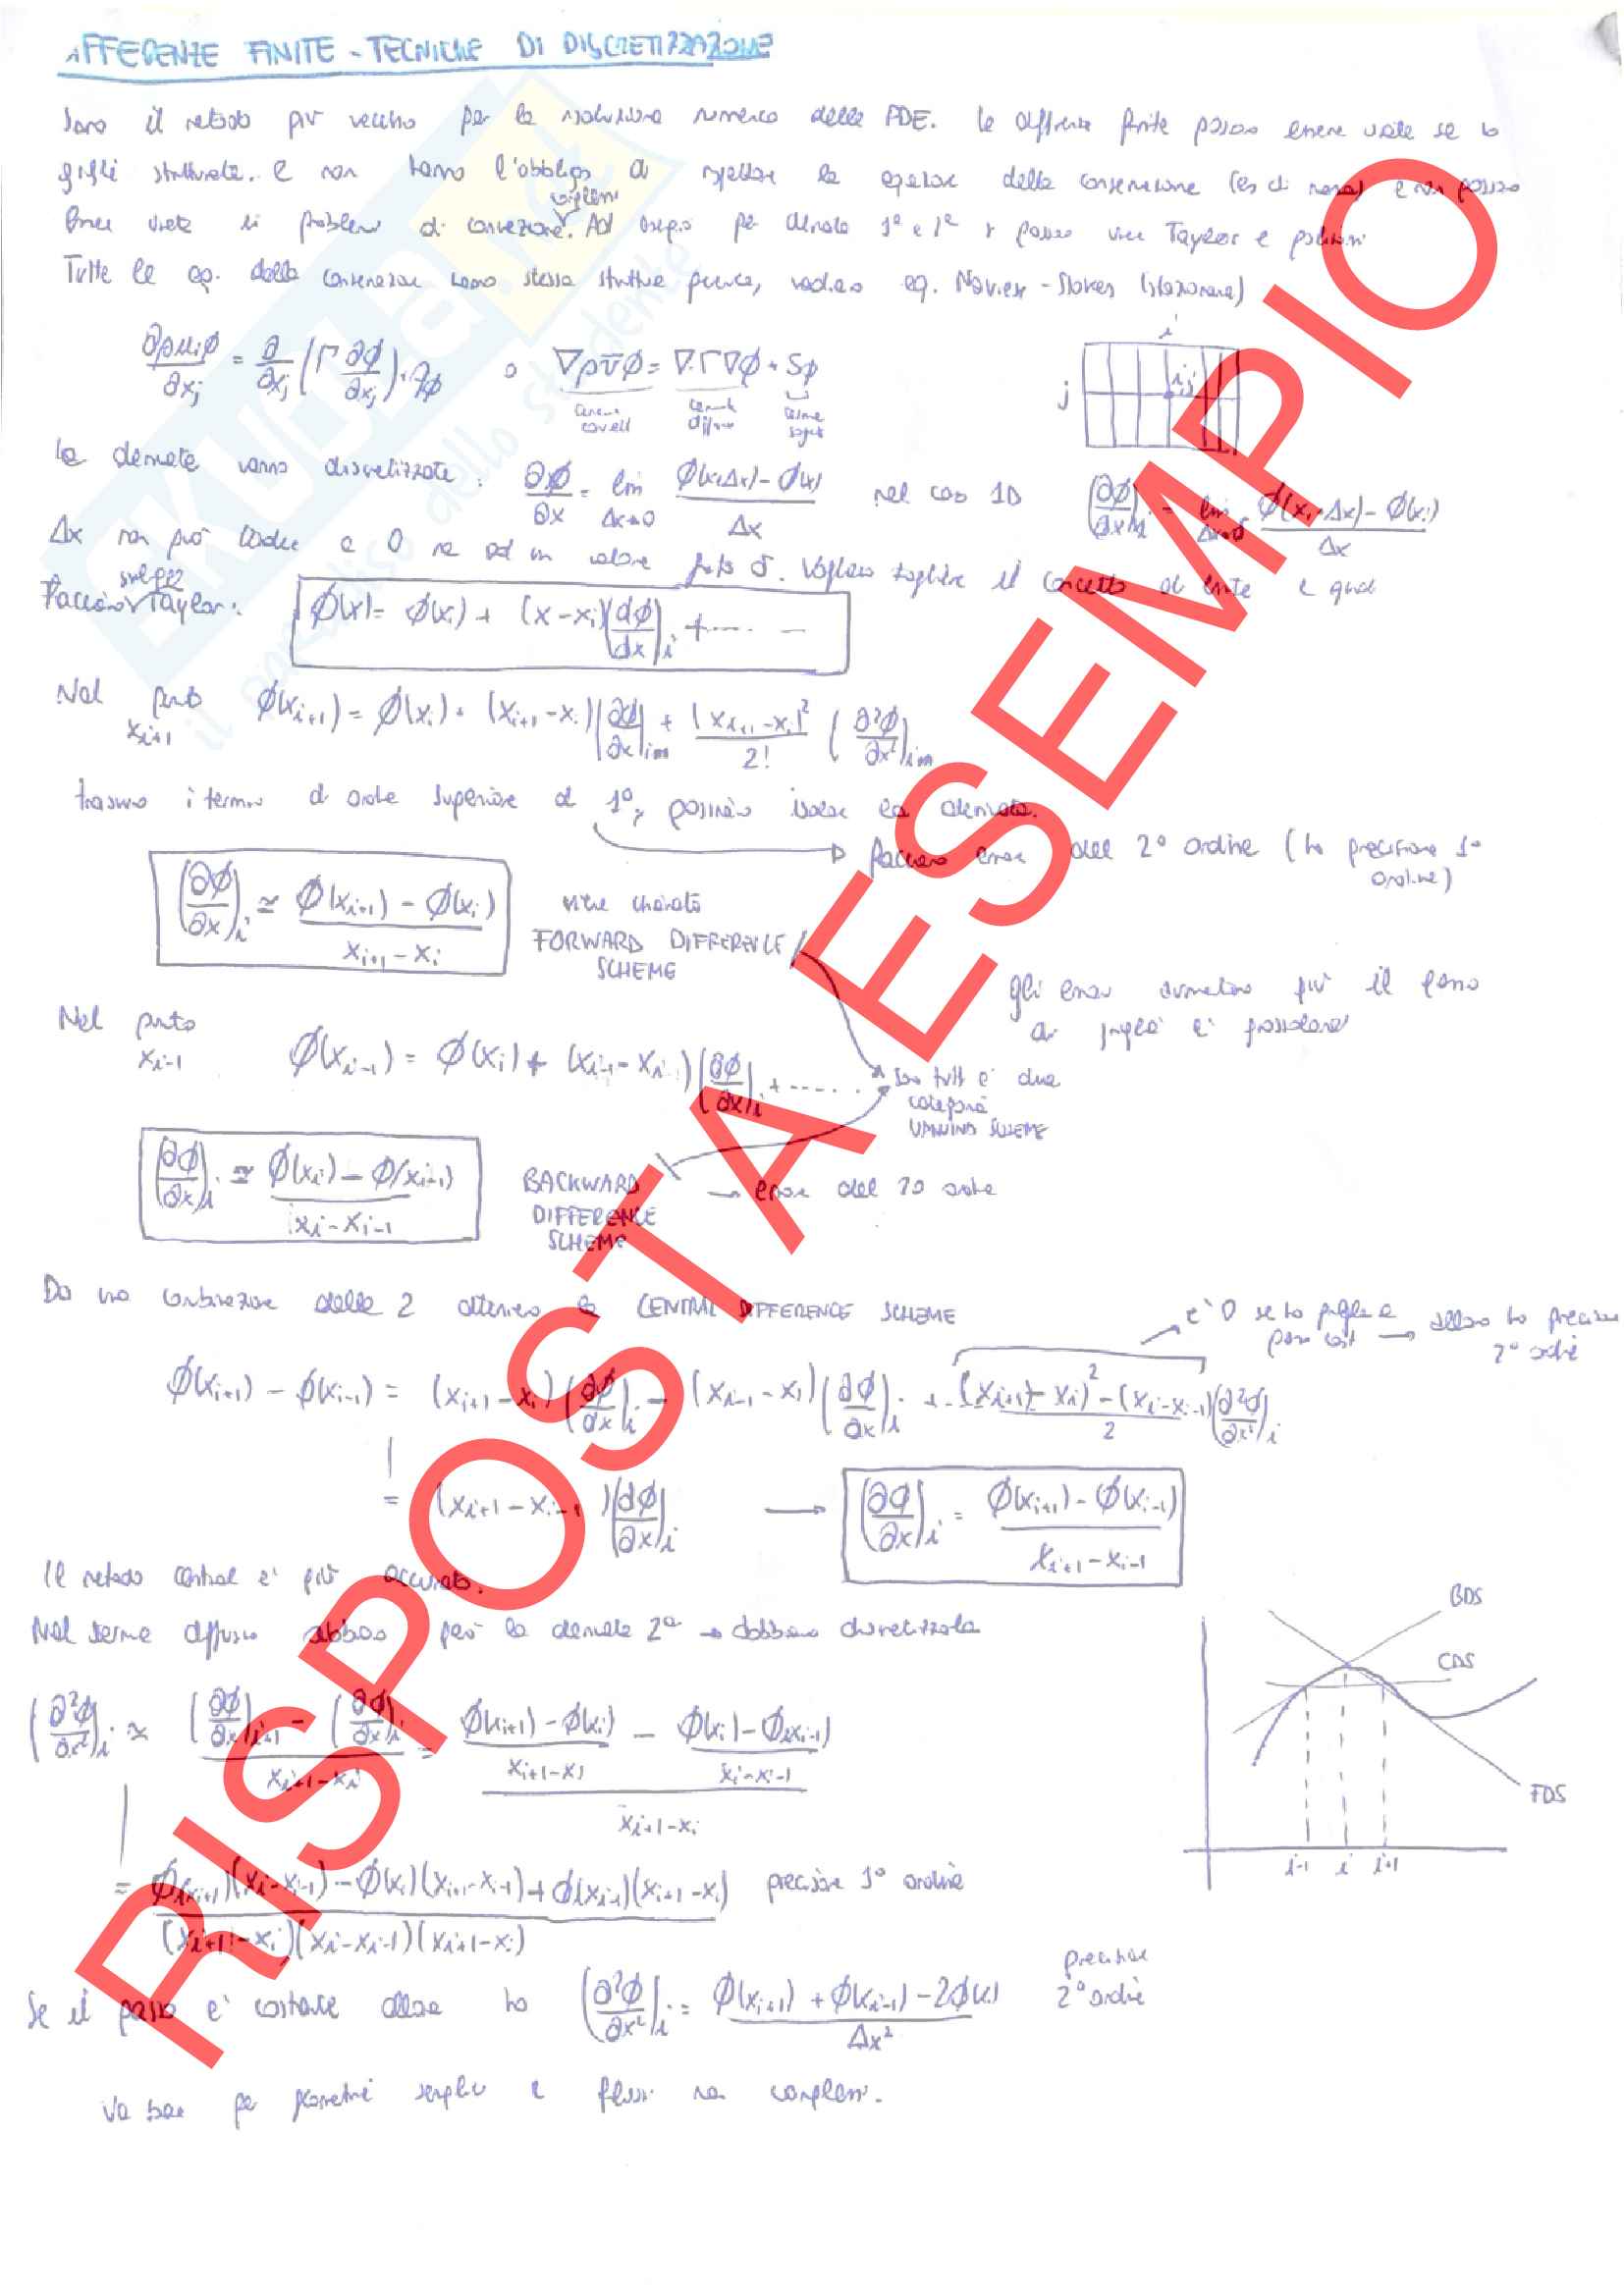 DIFFERENZE FINITE - TECNICHE DI DISCRETIZZAZIONE
Sono il metodo più vecchio per la risoluzione numerica delle PDE. Le differenze finite possono essere usate se ho
griglie strutturate. e non hanno l'obbligo di rispettare le equazioni della conservazione (es di massa) e non possono
essere usate in problemi di convezione. Ad esempio per derivate 1ª e 2ª si possono usare Taylor e polinomi
complessi
Tutte le eq. della conservazione hanno stessa struttura perciò, vediamo eq. Navier-Stokes (stazionaria)
∂ρu_iφ/∂x_j = ∂/∂x_j (Γ ∂φ/∂x_j) + q_φ o ∇ρv̄φ = ∇·Γ∇φ + Sφ
termine convett termine diffusivo termine sorgente
i
j
i,j
Le derivate vanno discretizzate: ∂φ/∂x = lim Δx→0 φ(x+Δx)-φ(x) / Δx nel caso 1D (∂φ/∂x)_i = lim Δx→0 φ(x_i+Δx)-φ(x_i) / Δx
Δx non può tendere a 0 ma ad un valore finito δ. Vogliamo togliere il concetto di limite e quindi
Facciamo sviluppo Taylor: φ(x) = φ(x_i) + (x-x_i)(dφ/dx)_i + ....
Nel punto x_{i+1} φ(x_{i+1}) = φ(x_i) + (x_{i+1}-x_i)(∂φ/∂x)_im + (x_{i+1}-x_i)²/2! (∂²φ/∂x²)_im
trascuro i termini di ordine superiore al 1°, possiamo isolare la derivata.
facciamo errore del 2° ordine (ho precisione 1° ordine)
(∂φ/∂x)_i ≃ φ(x_{i+1}) - φ(x_i) / x_{i+1} - x_i
viene chiamato
FORWARD DIFFERENCE
SCHEME
gli errori aumentano più il passo
di griglia è grossolano
Nel punto x_{i-1} φ(x_{i-1}) = φ(x_i) + (x_{i-1}-x_i)(∂φ/∂x)_i + .....
sono tutti e due
categoria
UPWIND SCHEME
(∂φ/∂x)_i ≃ φ(x_i) - φ(x_{i-1}) / x_i - x_{i-1}
BACKWARD
DIFFERENCE
SCHEME
→ errore del 2° ordine
Da una combinazione delle 2 otteniamo la CENTRAL DIFFERENCE SCHEME
è 0 se ho griglia a passo cost → allora ho precisione 2° ordine
φ(x_{i+1}) - φ(x_{i-1}) = (x_{i+1}-x_i)(∂φ/∂x)_i - (x_{i-1}-x_i)(∂φ/∂x)_i + (x_{i+1}-x_i)²-(x_i-x_{i-1})/2 (∂²φ/∂x²)_i
= (x_{i+1}-x_{i-1})(∂φ/∂x)_i → (∂φ/∂x)_i = φ(x_{i+1})-φ(x_{i-1}) / x_{i+1}-x_{i-1}
Il metodo central è più accurato.
Nel termine diffusivo abbiamo però la derivata 2ª → dobbiamo discretizzarla
BDS
CDS
FDS
i-1 i i+1
(∂²φ/∂x²)_i ≃ (∂φ/∂x)_{i+1} - (∂φ/∂x)_i / x_{i+1}-x_i = φ(x_{i+1})-φ(x_i) / x_{i+1}-x_i - φ(x_i)-φ(x_{i-1}) / x_i-x_{i-1}
x_{i+1}-x_i
= φ(x_{i+1})(x_i-x_{i-1})-φ(x_i)(x_{i+1}-x_{i-1})+φ(x_{i-1})(x_{i+1}-x_i) precisione 1° ordine
(x_{i+1}-x_i)(x_i-x_{i-1})(x_{i+1}-x_i)
Se il passo è costante allora ho (∂²φ/∂x²)_i = φ(x_{i+1})+φ(x_{i-1})-2φ(x_i) / Δx² precisione 2° ordine
Va bene per geometrie semplici e flussi non complessi.
RISPOSTA ESEMPIO
SKUOLA
il paradiso dello studente